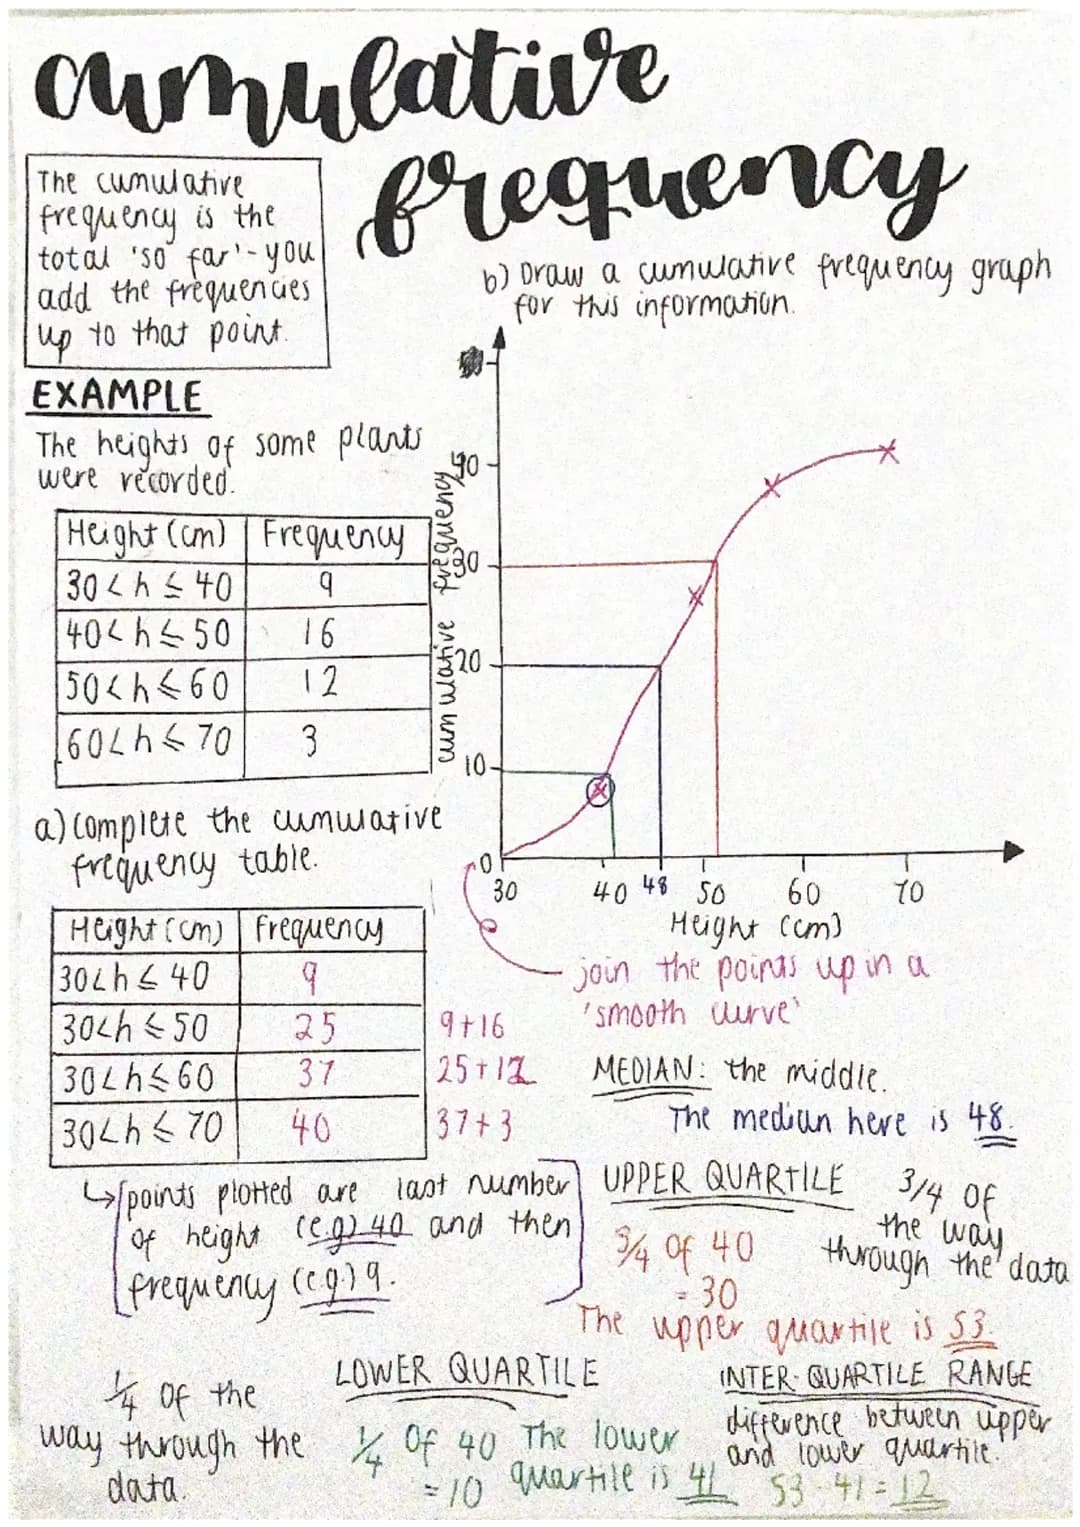 cumulative
frequency
The cumulative
frequency is the
total 'so far' - you
add the frequencies
up to that point.
EXAMPLE
The heights of some plants
were recorded.
Height (cm) Frequency
30 < h ≤ 40 9
40 < h ≤ 50 16
50 < h ≤ 60 12
60 < h ≤ 70 3
a) Complete the cumulative
frequency table.
Height (cm) Frequency
30 < h ≤ 40 9
30 < h ≤ 50 25 9+16
30 < h ≤ 60 37 25+12
30 < h ≤ 70 40 37+3
↳ points plotted are last number
of height (e.g) 40 and then
frequency (e.g.) 9.
b) Draw a cumulative frequency graph
for this information.
cumulative frequency
40
30
20
10
0
30 40 48 50 60 70
Height (cm)
join the points up in a
'smooth curve'
MEDIAN: the middle.
The median here is 48.
UPPER QUARTILE 3/4 of
the way
through the data
3/4 of 40
= 30
The upper quartile is 53
LOWER QUARTILE
1/4 of the
way through the
data.
1/4 of 40
= 10
The lower
quartile is 41
INTER-QUARTILE RANGE
difference between upper
and lower quartile.
53 - 41 = 12